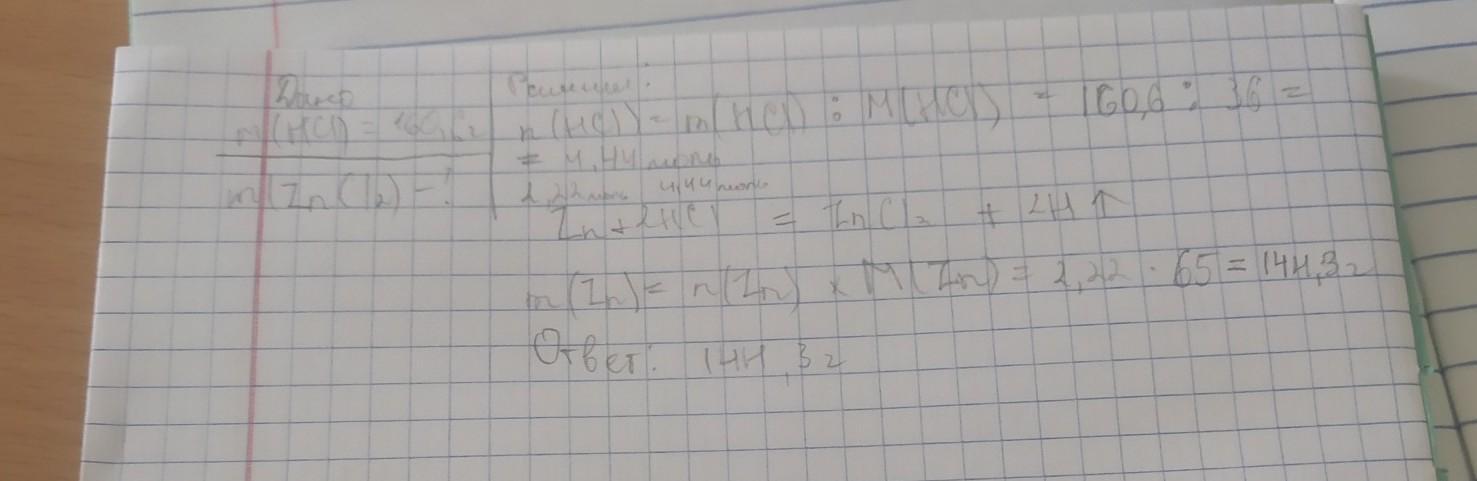 Дано
m(HCl) = 160,6 г
m(ZnCl₂) - ?
Решение:
n(HCl) = m(HCl) : M(HCl) = 160,6 : 36 =
= 4,44 моль
2,22 моль 4,44 моль
Zn + 2HCl = ZnCl₂ + 2H ↑
m(Zn) = n(Zn) × M(Zn) = 2,22 · 65 = 144,3 г
Ответ: 144,3 г